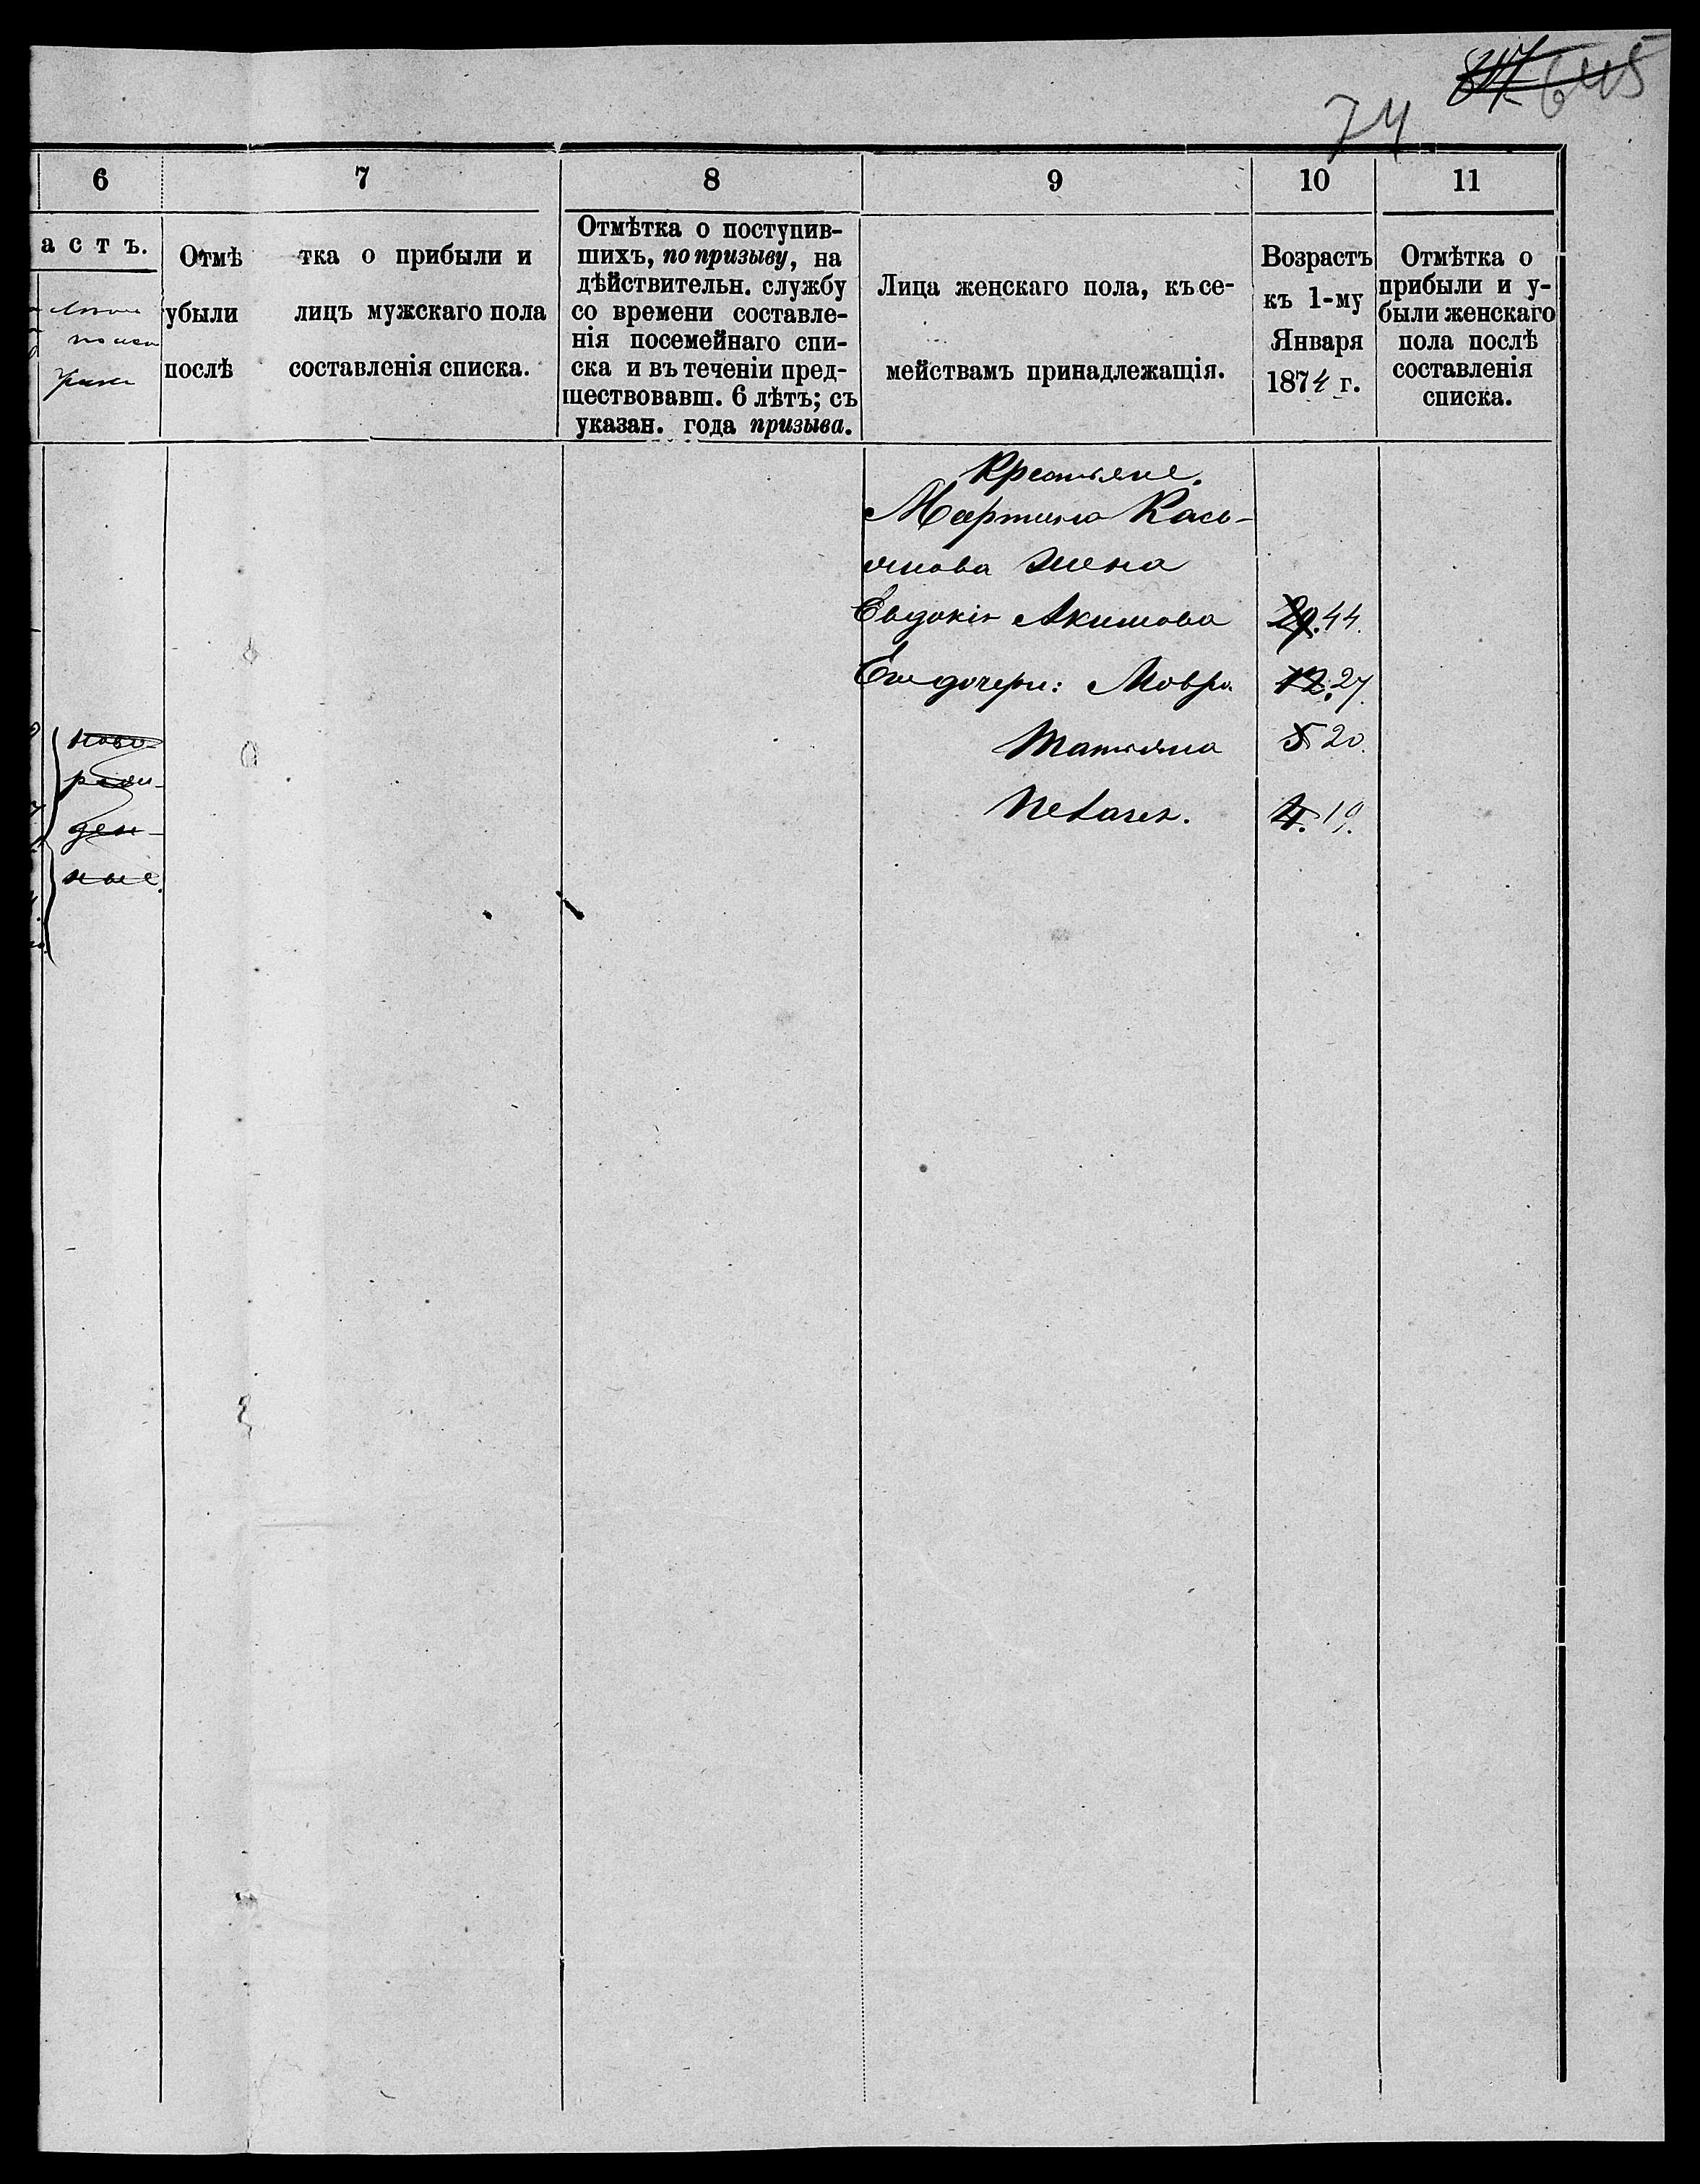 817 645
74
6 7 8 9 10 11
астъ.
Отмѣтка о прибыли и
убыли лицъ мужскаго пола
послѣ составленія списка.
Отмѣтка о поступив-
шихъ, по призыву, на
дѣйствительн. службу
со времени составле-
нія посемейнаго спи-
ска и въ теченіи пред-
шествовавш. 6 лѣтъ; съ
указан. года призыва.
Лица женскаго пола, къ се-
мействамъ принадлежащія.
Возрастъ
къ 1-му
Января
1874 г.
Отмѣтка о
прибыли и у-
были женскаго
пола послѣ
составленія
списка.
ново-
рож-
ден-
ные.
Крестьяне.
Мартина Кась-
янова жена
Евдокія Акимова 29. 44.
Ея дочери: Мавра 12. 27.
Татьяна 5 20.
Пелагея. 4. 19.